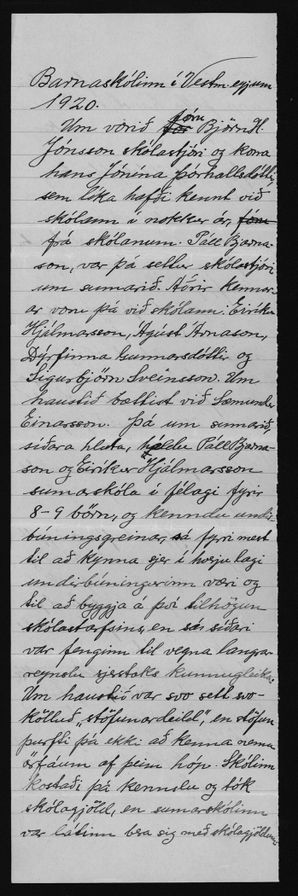 Barnaskólinn í Vestm.eyjum
1920.
Um vorið fóru Björn H.
Jónsson skólastjóri og kona
hans Jónína Þórhallsdóttir,
sem líka hafði kennt við
skólann í nokkur ár,
frá skólanum. Páll Bjarna-
son, var þá settur skólastjóri
um sumarið. Aðrir kennar-
ar voru þá við skólann: Eiríkur
Hjálmarsson, Ágúst Árnason,
Dýrfinna Gunnarsdóttir og
Sigurbjörn Sveinsson. Um
haustið bættist við Sæmundur
Einarsson. Þá um sumarið,
síðara hluta, héldu Páll Bjarna-
son og Eiríkur Hjálmarsson
sumarskóla í félagi fyrir
8-9 börn, og kenndu undir-
búningsgreinar, sá fyri mest
til að kynna sjer í hverju lagi
undirbúningurinn væri og
til að byggja á því tilhögun
skólastarfsins, en sá síðari
var fenginn til vegna langrar
reynslu sjerstaks kunnugleika.
Um haustið var svo sett svo-
kölluð „stöfunardeild", en stöfun
þurfti þá ekki að kenna nema
örfáum af þeim hóp. Skólinn
kostaði þá kennslu og tók
skólagjöld, en sumarskólinn
var látinn bera sig með skólagjöldum.